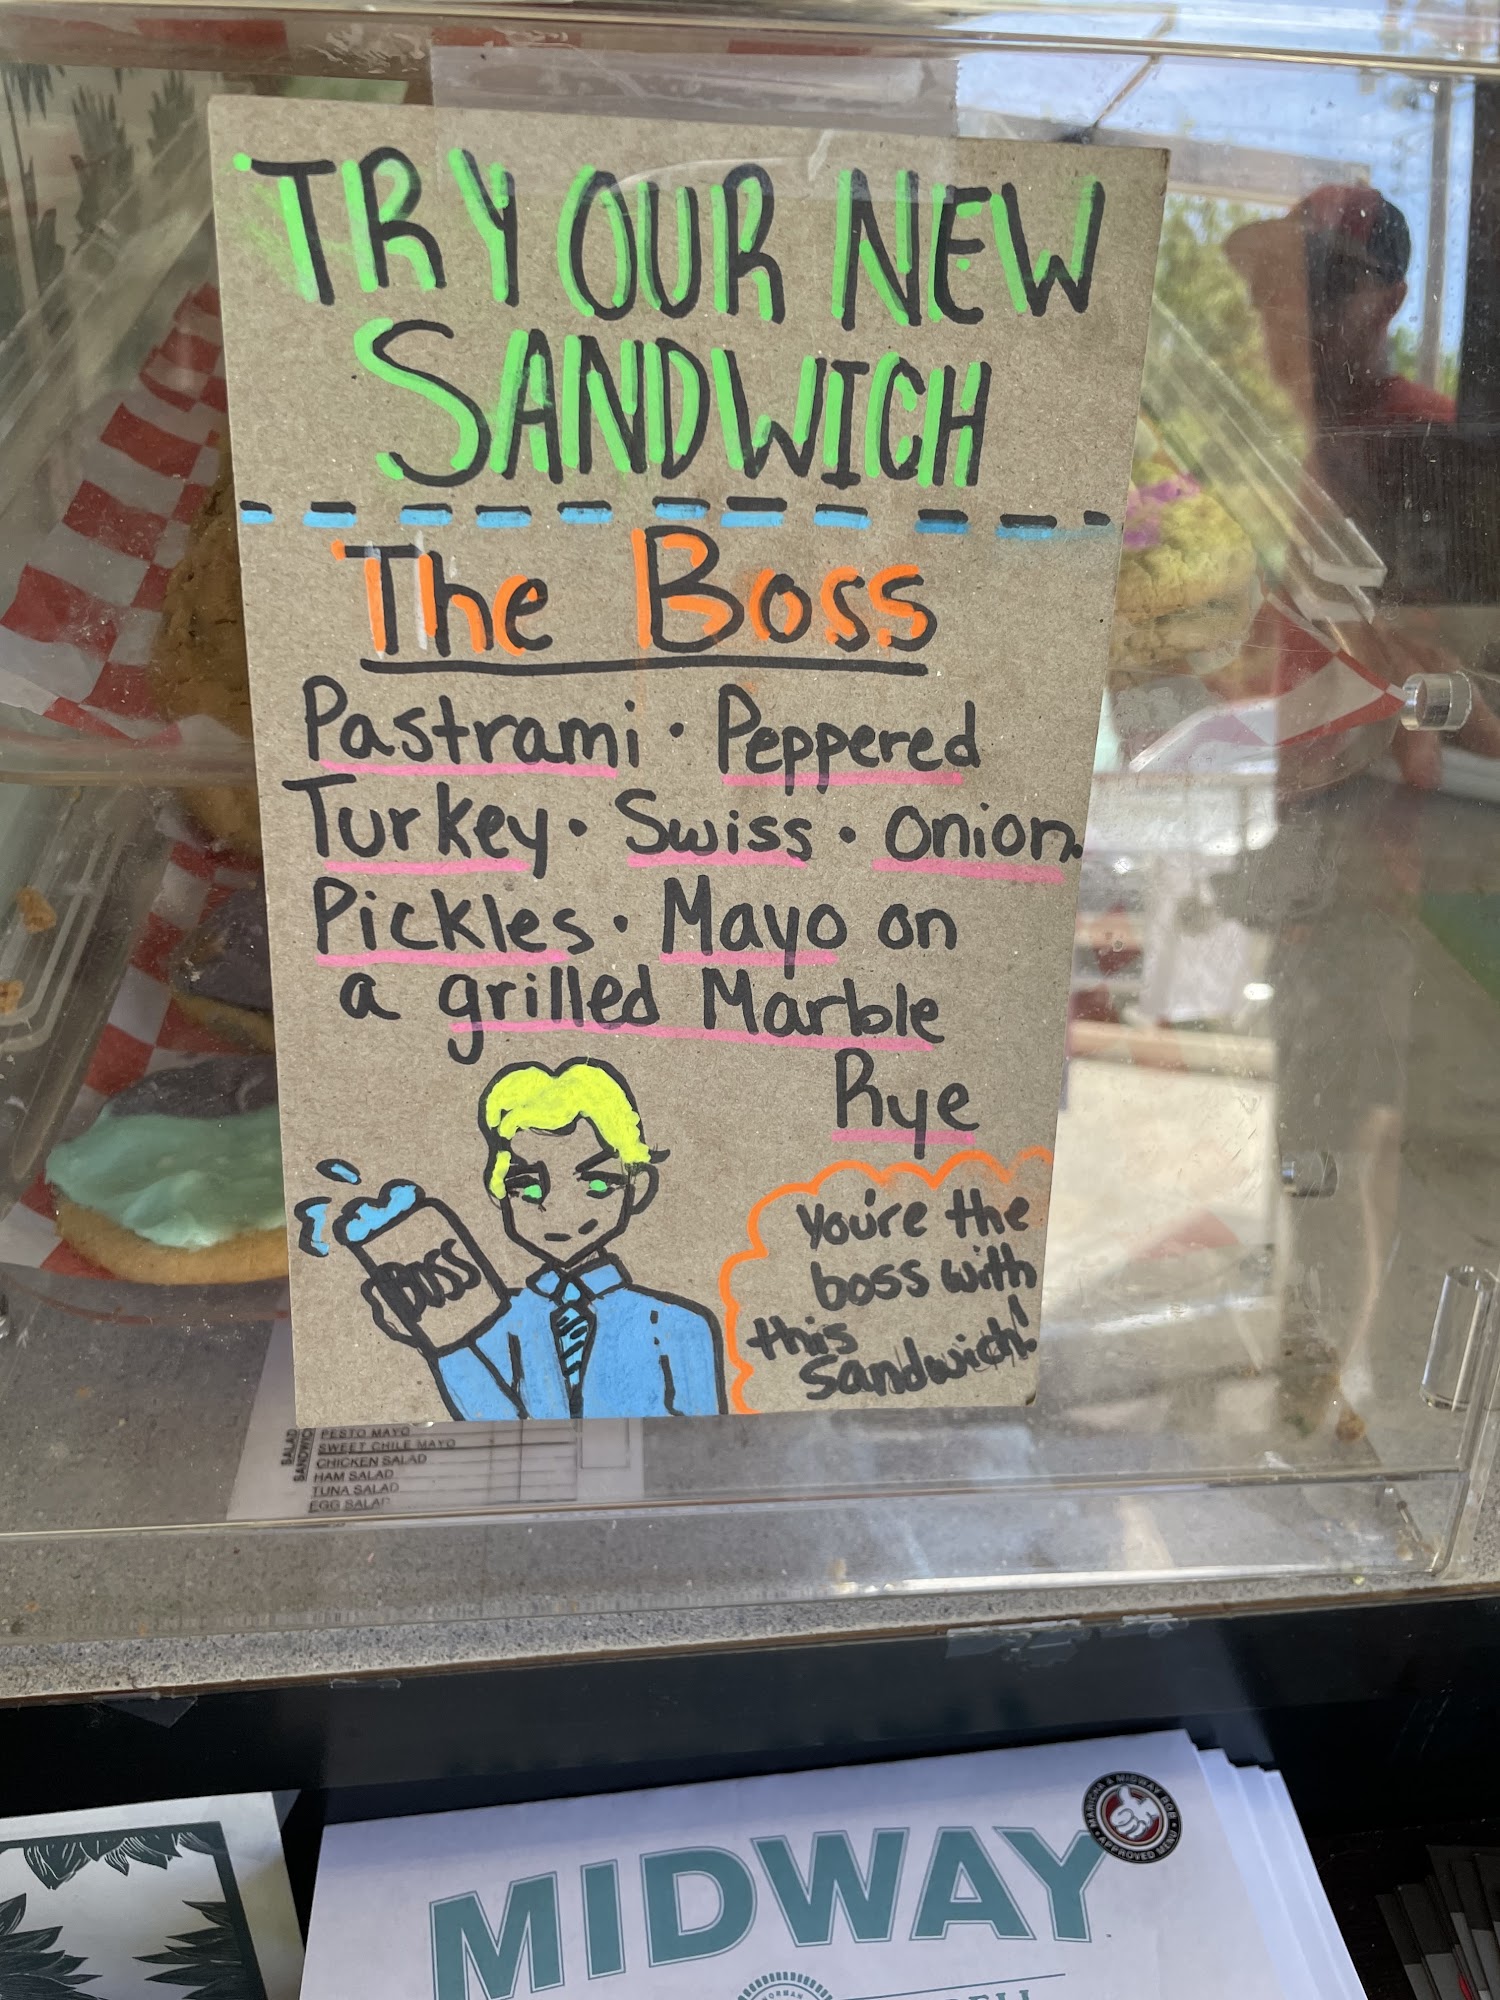 TRY OUR NEW
SANDWICH
The Boss
Pastrami · Peppered
Turkey · Swiss · Onion ·
Pickles · Mayo on
a grilled Marble
Rye
BOSS
You're the
boss with
this
sandwich!
SALAD
SANDWICH
PESTO MAYO
SWEET CHILE MAYO
CHICKEN SALAD
HAM SALAD
TUNA SALAD
EGG SALAD
MIDWAY
APPROVED MENU
NORMAN
DELI